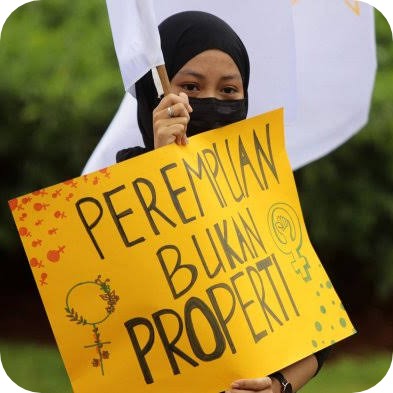 PEREMPUAN
BUKAN
PROPERTI